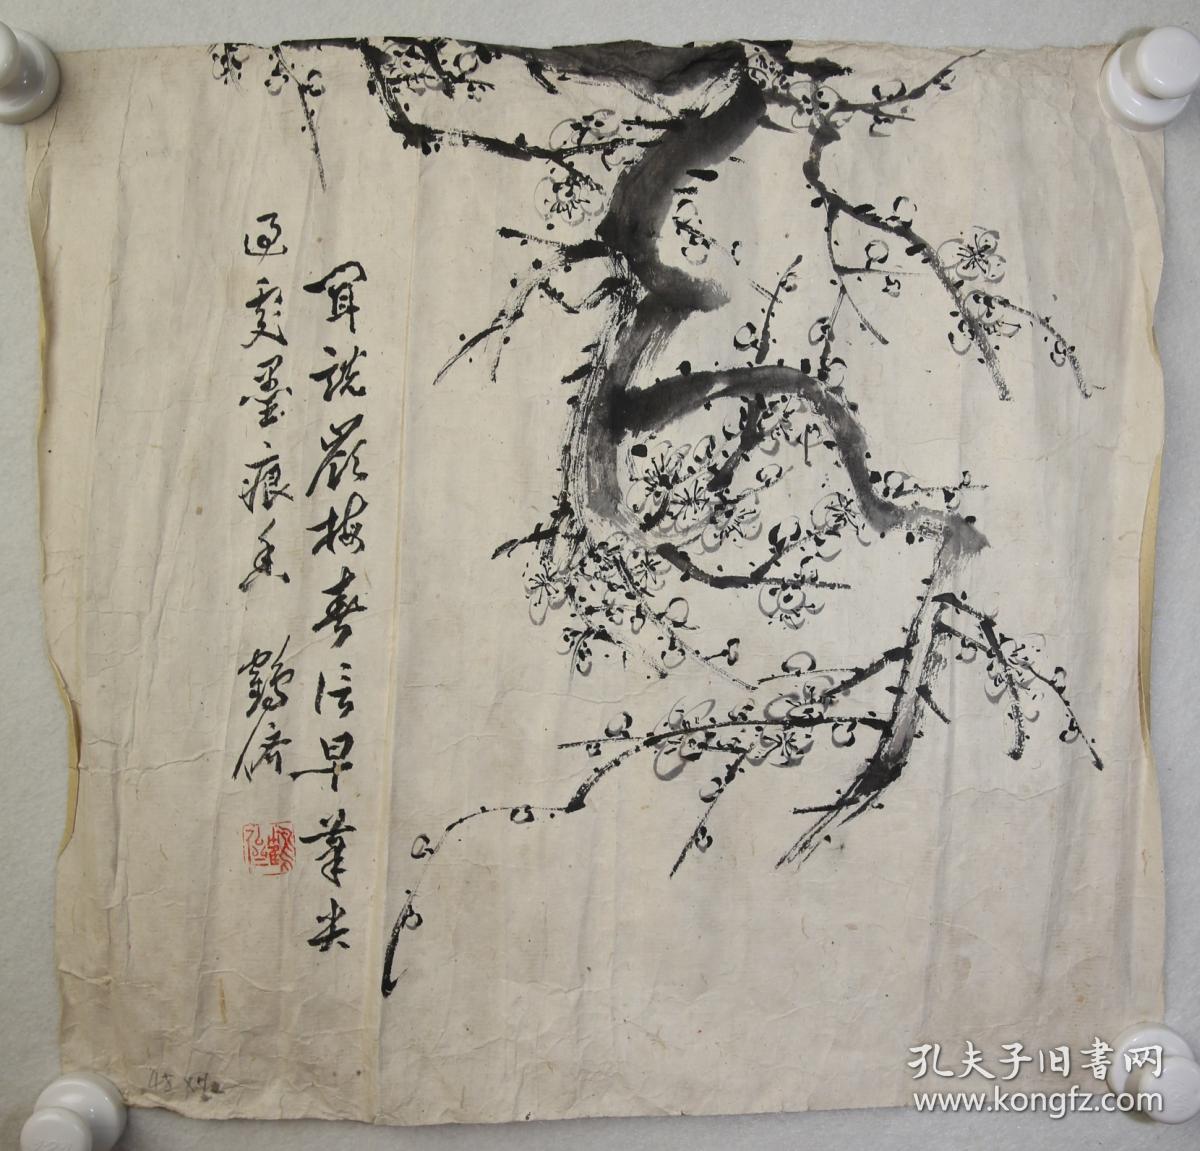 聞説嶺梅春信早筆尖
過處墨痕香 鶴儕
孔夫子旧书网
www.kongfz.com